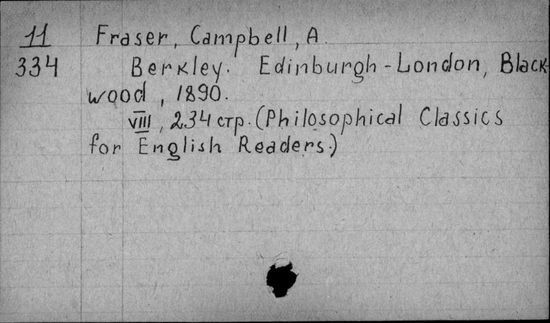 11 Fraser, Campbell, A.
334 Berkley. Edinburgh-London, Black-
wood, 1890.
VIII, 234 стр. (Philosophical Classics
for English Readers.)